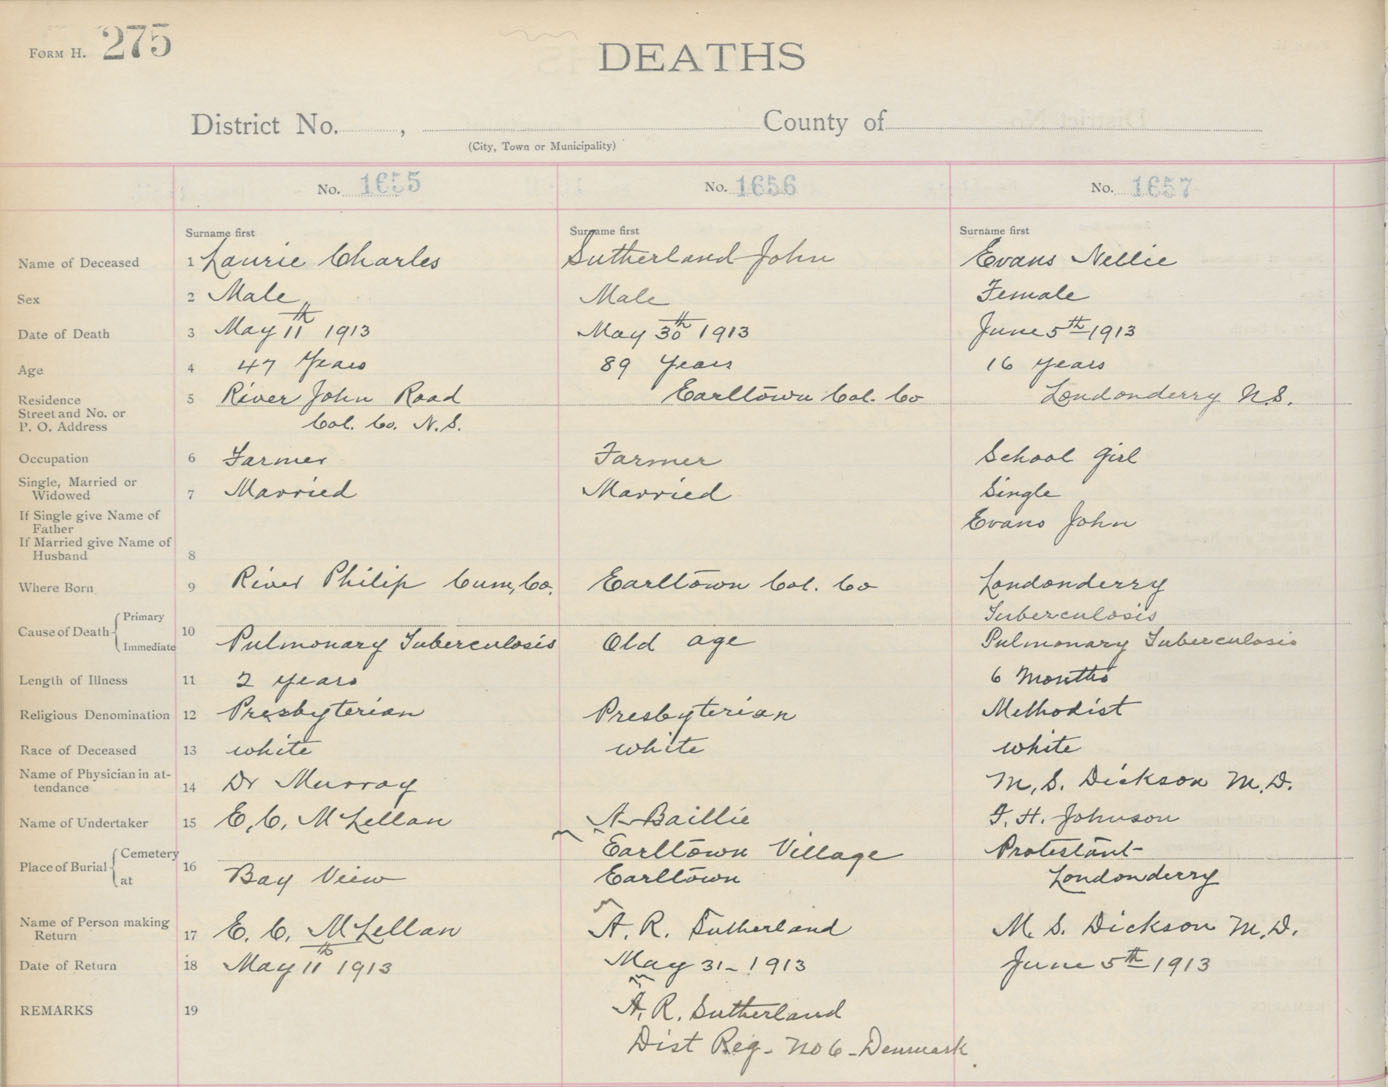 FORM H. 275
DEATHS
District No. , County of
(City, Town or Municipality)
No. 1655 No. 1656 No. 1657
Surname first Surname first Surname first
Name of Deceased 1 Laurie Charles Sutherland John Evans Nellie
Sex 2 Male Male Female
Date of Death 3 May 11th 1913 May 30th 1913 June 5th 1913
Age 4 47 Years 89 Years 16 years
Residence 5 River John Road Earltown Col. Co Londonderry N.S.
Street and No. or
P. O. Address Col. Co. N.S.
Occupation 6 Farmer Farmer School girl
Single, Married or
Widowed 7 Married Married Single
If Single give Name of
Father Evans John
If Married give Name of
Husband 8
Where Born 9 River Philip Cum, Co. Earltown Col. Co Londonderry
Primary Tuberculosis
Cause of Death 10
Immediate Pulmonary Tuberculosis Old age Pulmonary Tuberculosis
Length of Illness 11 2 years 6 Months
Religious Denomination 12 Presbyterian Presbyterian Methodist
Race of Deceased 13 white white white
Name of Physician in at-
tendance 14 Dr Murray M. S. Dickson M.D.
Name of Undertaker 15 E. C. McLellan A Baillie F. H. Johnson
Cemetery Earltown Village Protestant
Place of Burial 16
at Bay View Earltown Londonderry
Name of Person making
Return 17 E. C. McLellan A. R. Sutherland M. S. Dickson M.D.
Date of Return 18 May 11th 1913 May 31- 1913 June 5th 1913
REMARKS 19 A. R. Sutherland
Dist Reg- No 6- Denmark.